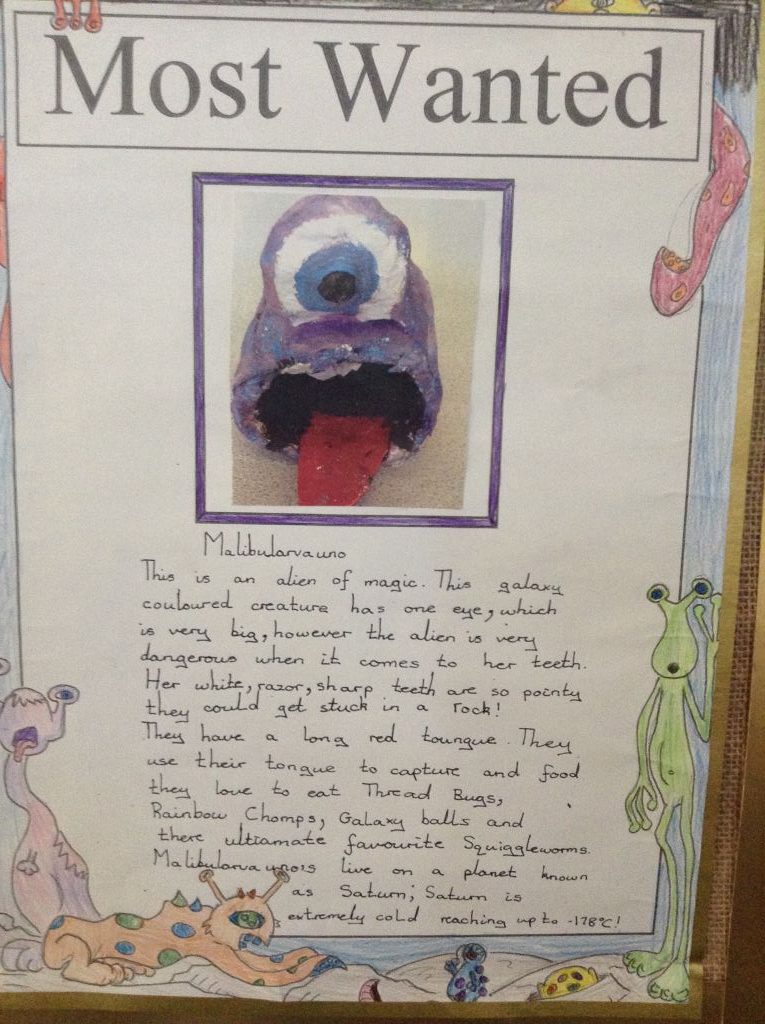 Most Wanted
Malibularvauno
This is an alien of magic. This galaxy
couloured creature has one eye, which
is very big, however the alien is very
dangerous when it comes to her teeth.
Her white, razor, sharp teeth are so pointy
they could get stuck in a rock!
They have a long red toungue. They
use their tongue to capture and food
they love to eat Thread Bugs,
Rainbow Chomps, Galaxy balls and
there ultiamate favourite Squiggleworms.
Malibularvauno's live on a planet known
as Saturn; Saturn is
extremely cold reaching up to -178°C!